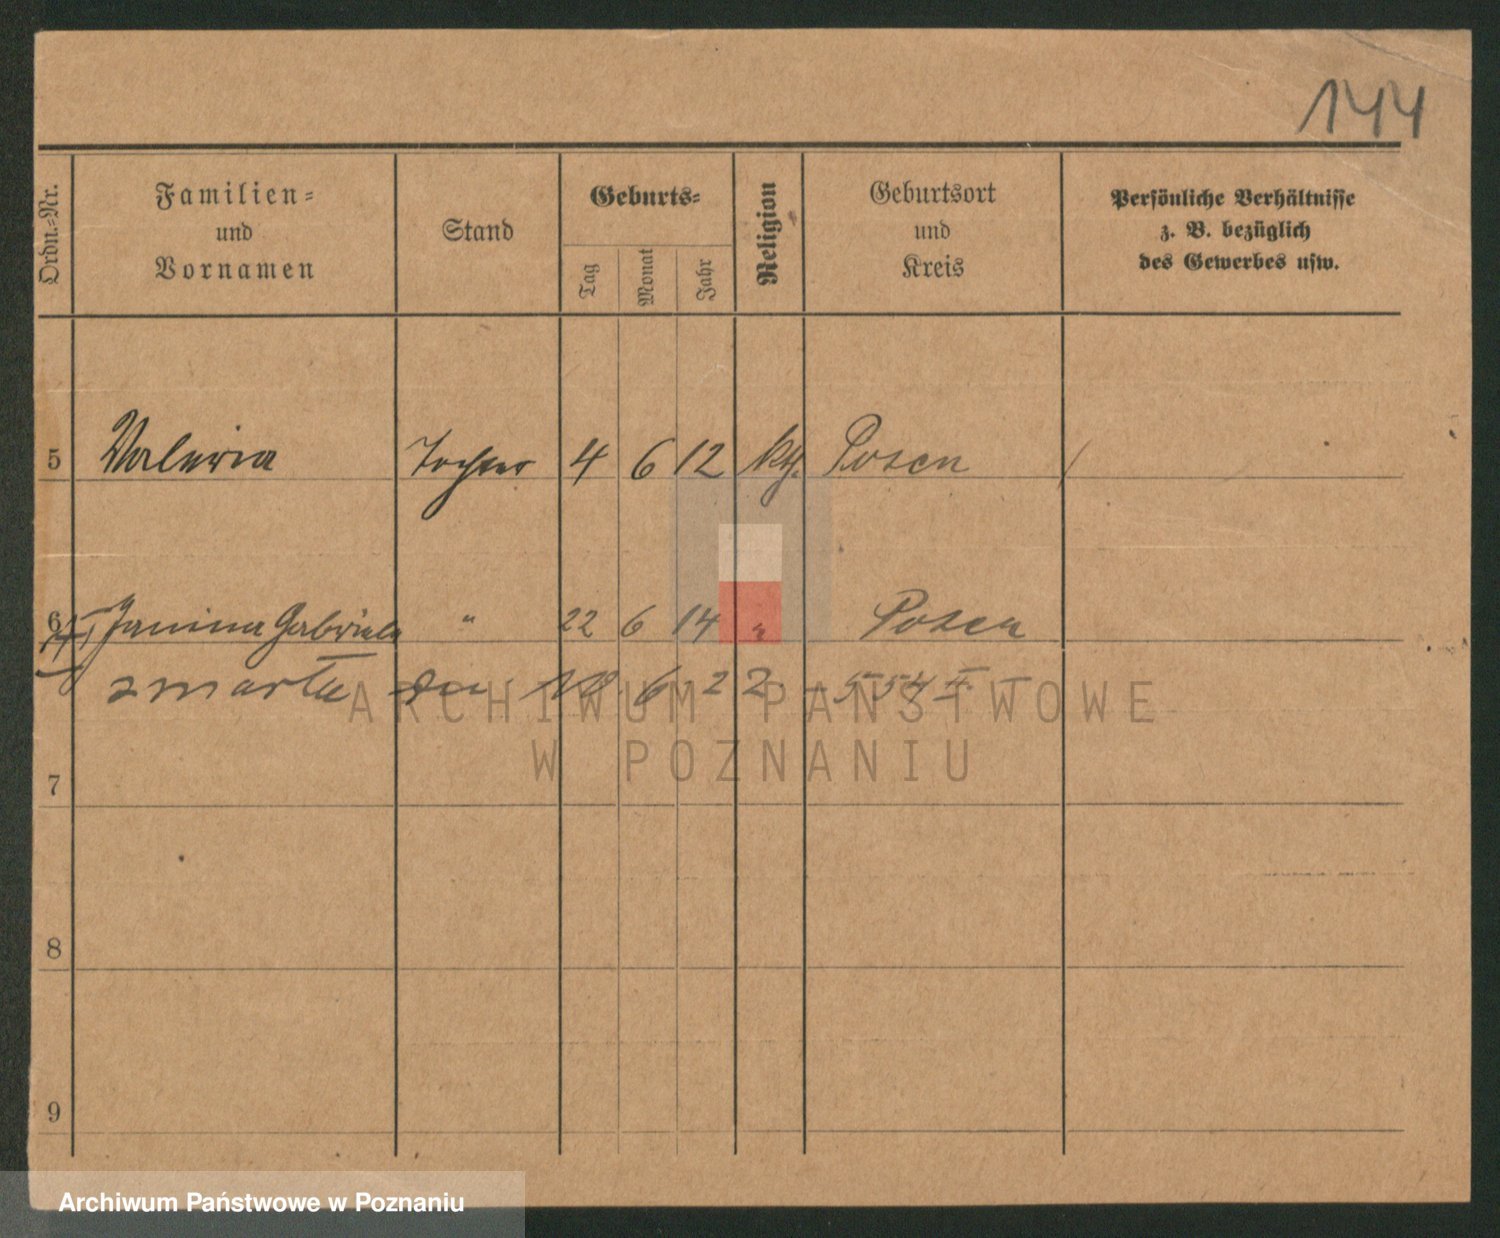 144
Ordn.=Nr.
Familien=
und
Vornamen
Stand
Geburts=
Tag
Monat
Jahr
Religion
Geburtsort
und
Kreis
Persönliche Verhältnisse
z. B. bezüglich
des Gewerbes usw.
5 Valeria Tochter 4 6 12 kth. Posen /
6 Janina Gabriela " 22 6 14 " Posen
zmarła 18 6 22 554 II
ARCHIWUM PAŃSTWOWE
W POZNANIU
7
8
9
Archiwum Państwowe w Poznaniu